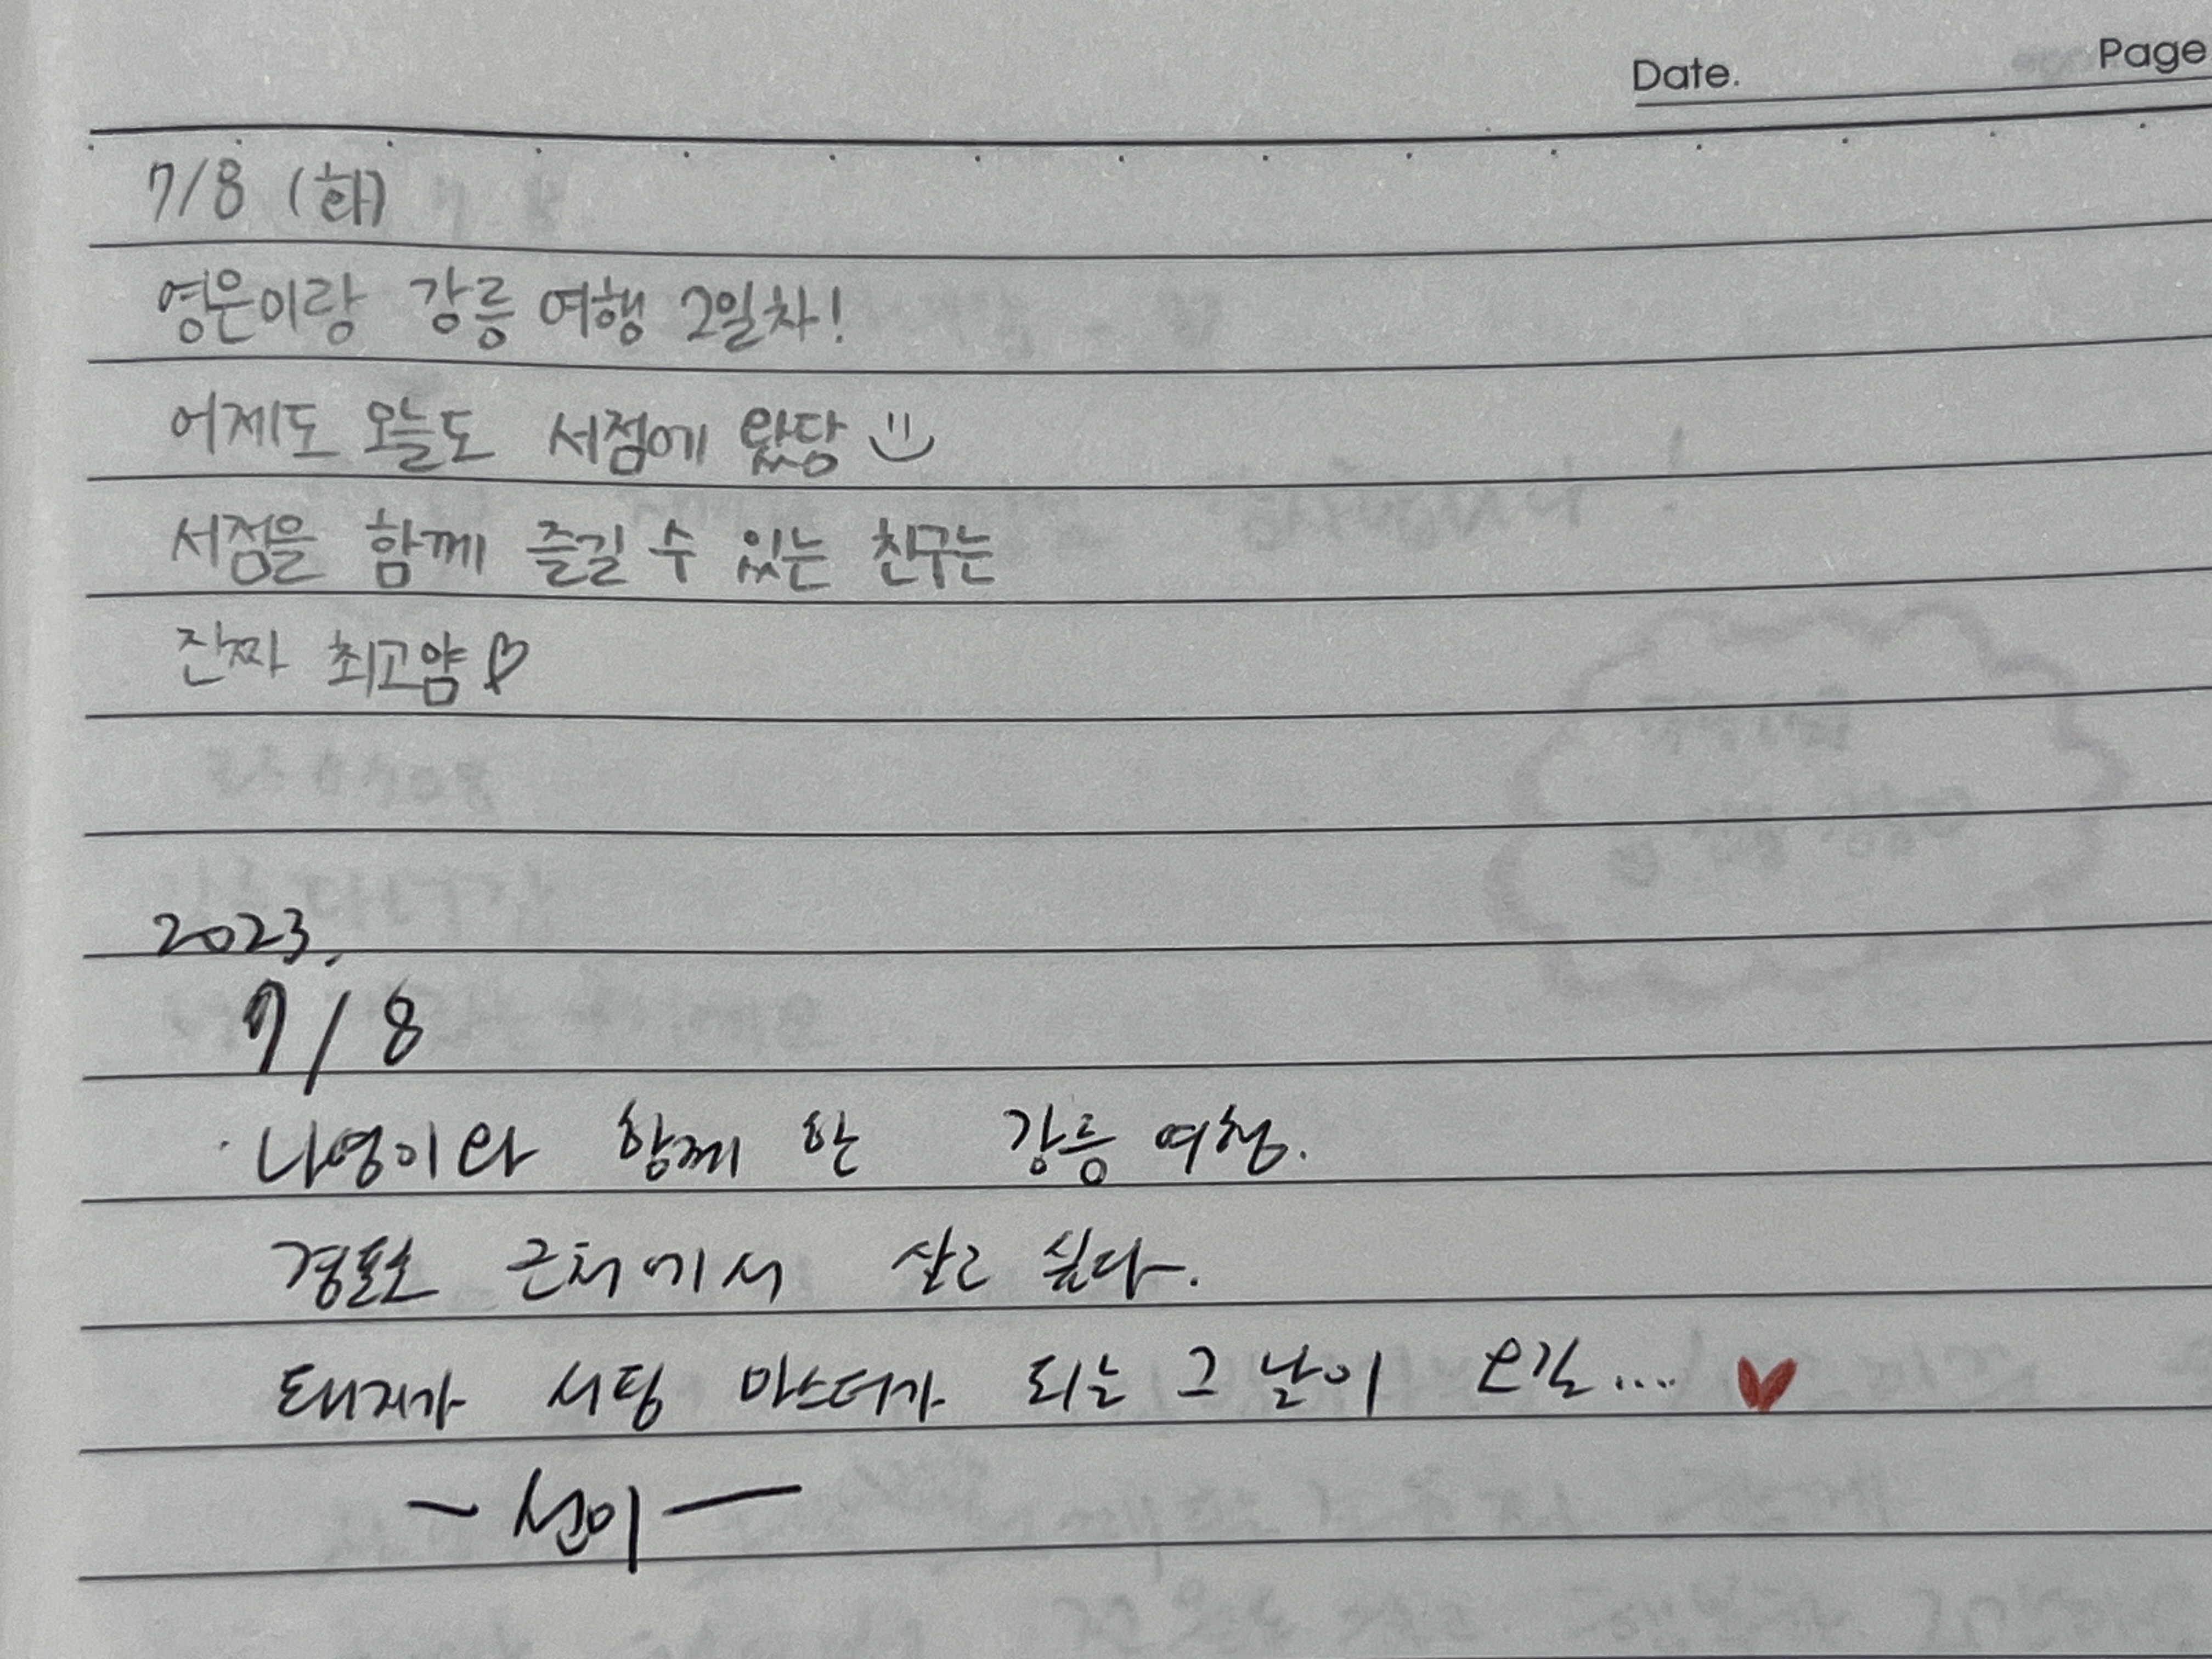 Date. Page
7/8 (화)
영은이랑 강릉 여행 2일차!
어제도 오늘도 서점에 왔당
서점을 함께 즐길 수 있는 친구는
진짜 최고얌♡
2023.
7/8
· 나영이와 함께 한 강릉 여행.
경포호 근처에서 살고 싶다.
돼지가 서핑 마스터가 되는 그 날이 오길.... ♥
ー 선이 ー